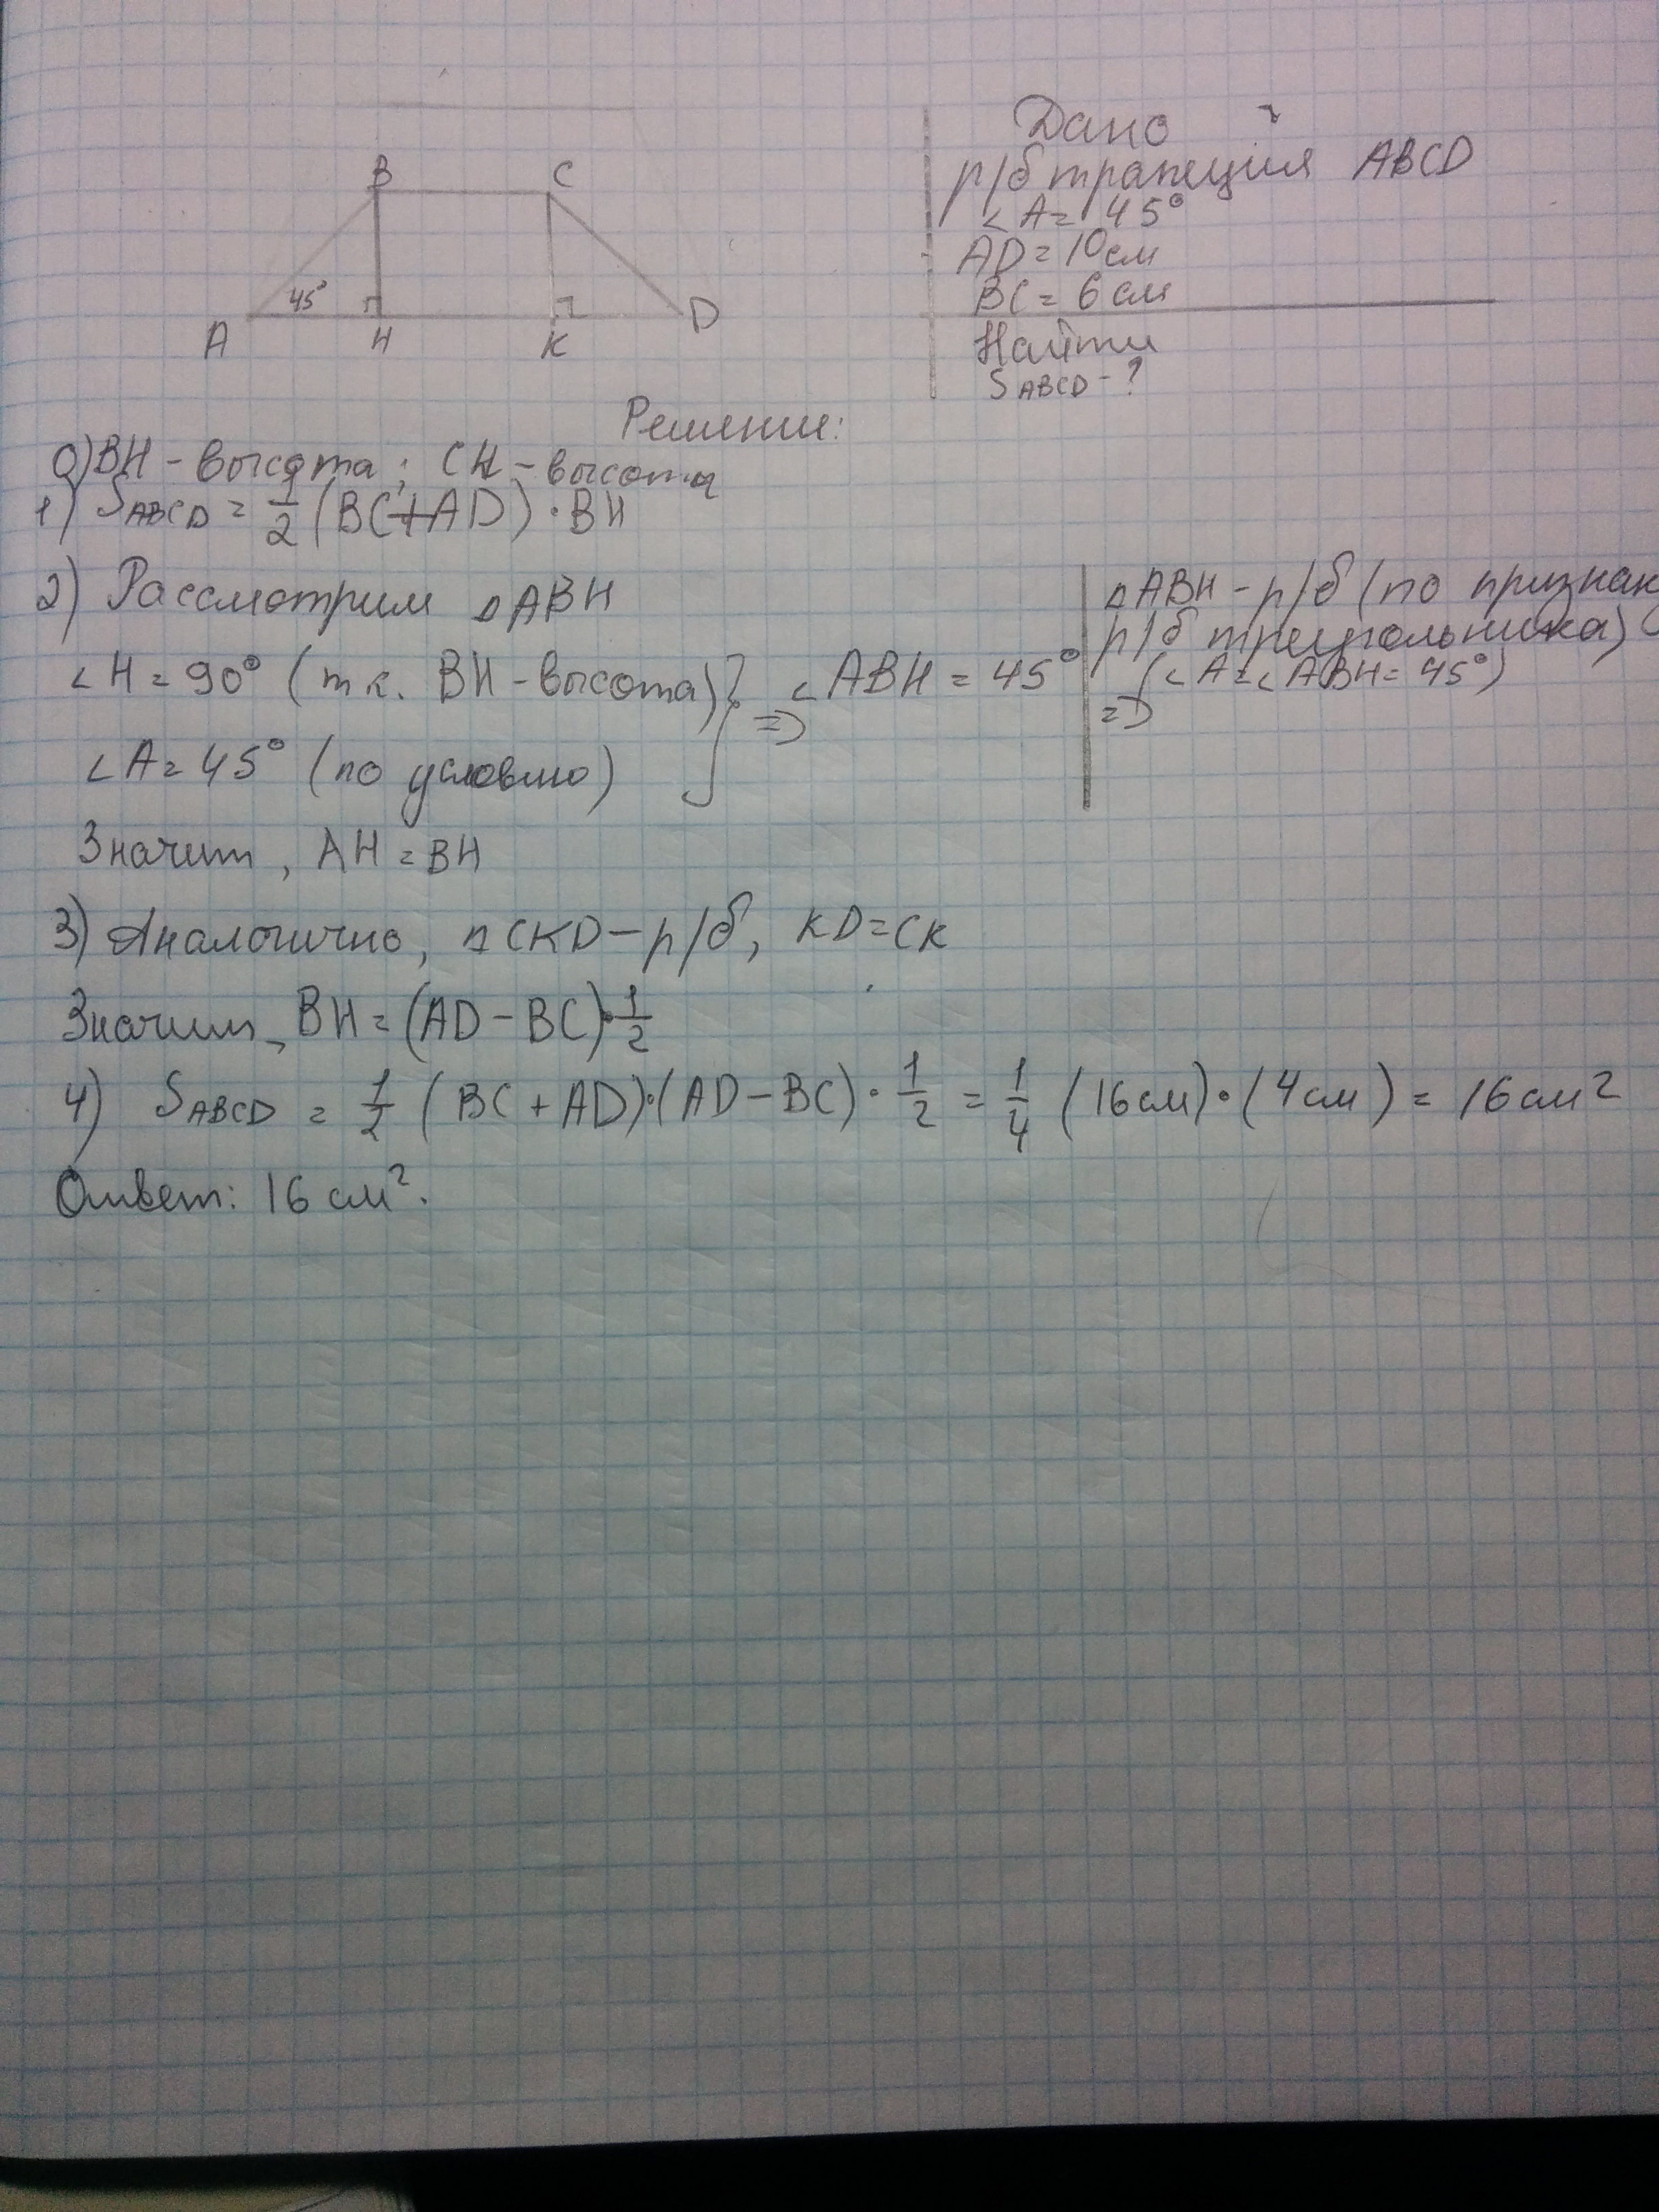 B C
45°
A H K D
Дано
р/б трапеция ABCD
∠A = 45°
AD = 10 см
BC = 6 см
Найти
S ABCD - ?
Решение:
0) BH - высота; CK - высота
1) S ABCD = 1/2 (BC + AD) · BH
2) Рассмотрим △ABH
∠H = 90° (т к. BH - высота) } => ∠ABH = 45°
∠A = 45° (по условию)
=> △ABH - р/б (по признак
р/б треугольника)
(∠A = ∠ABH = 45°)
Значит, AH = BH
3) Аналогично, △CKD - р/б, KD = CK
Значит, BH = (AD - BC) · 1/2
4) S ABCD = 1/2 (BC + AD) · (AD - BC) · 1/2 = 1/4 (16 см) · (4 см) = 16 см²
Ответ: 16 см².